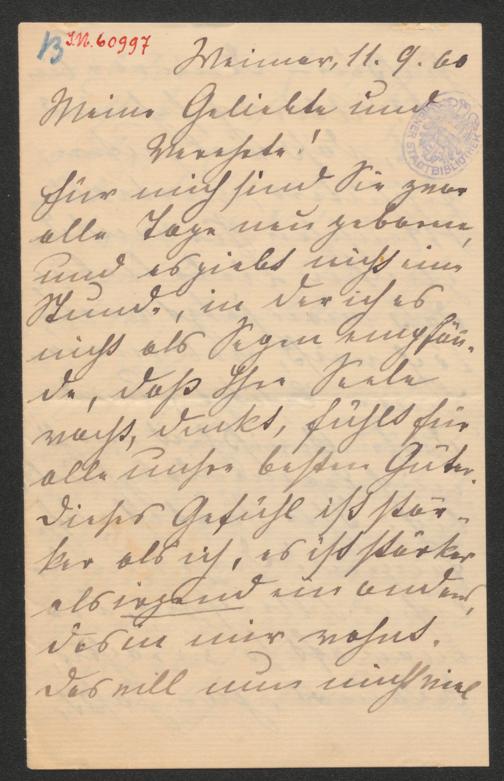 B J.N. 60997
WIENER STADTBIBLIOTHEK
Weimar, 11. 9. 00
Meine Geliebte und
Verehrte!
Für mich sind Sie zwar
alle Tage neu geboren,
und es giebt nicht eine
Stunde, in der ich es
nicht als Segen empfän-
de, daß Ihre Seele
wacht, denkt, fühlt für
alle unsre besten Güter.
Dieses Gefühl ist stär-
ker als ich, es ist stärker
als irgend ein andres,
das in mir wohnt.
Das will nun nicht viel